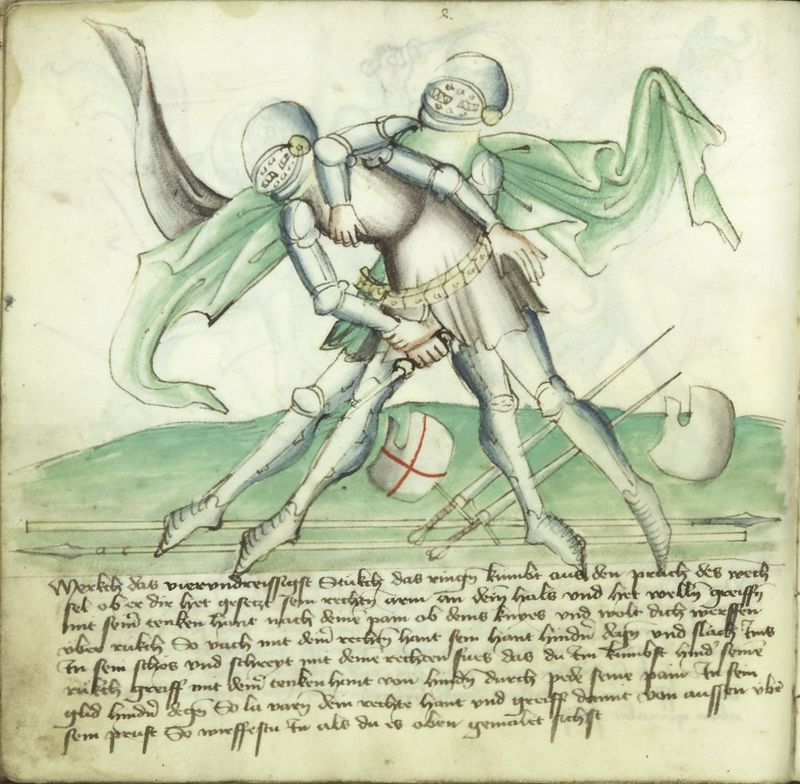 Merkch das vierunddreissigst Stukch das ringn kumbt aus den pruch des wech
sel ob er dir het gesetzt sein rechtn arm an dein hals und het welln greiffn
mit seim tenken hant nach deinē pain ob deins knyes und wolt dich werffen
uber rukch So vach mit deinē rechtn hant sein hant hindn̄ und slach Ims
In sein schos und schreyt mit deinē rechten fues das du Im kumbst hind̄ seinē
rukch greiff mit deinē tenken hant von hindn̄ durch pede seine pain In sein
glid hindn̄ So la varn̄ dein rechte hant und greiff damit von aussen ub̄
sein prust So wirffestu In als du es oben gemalet sichst